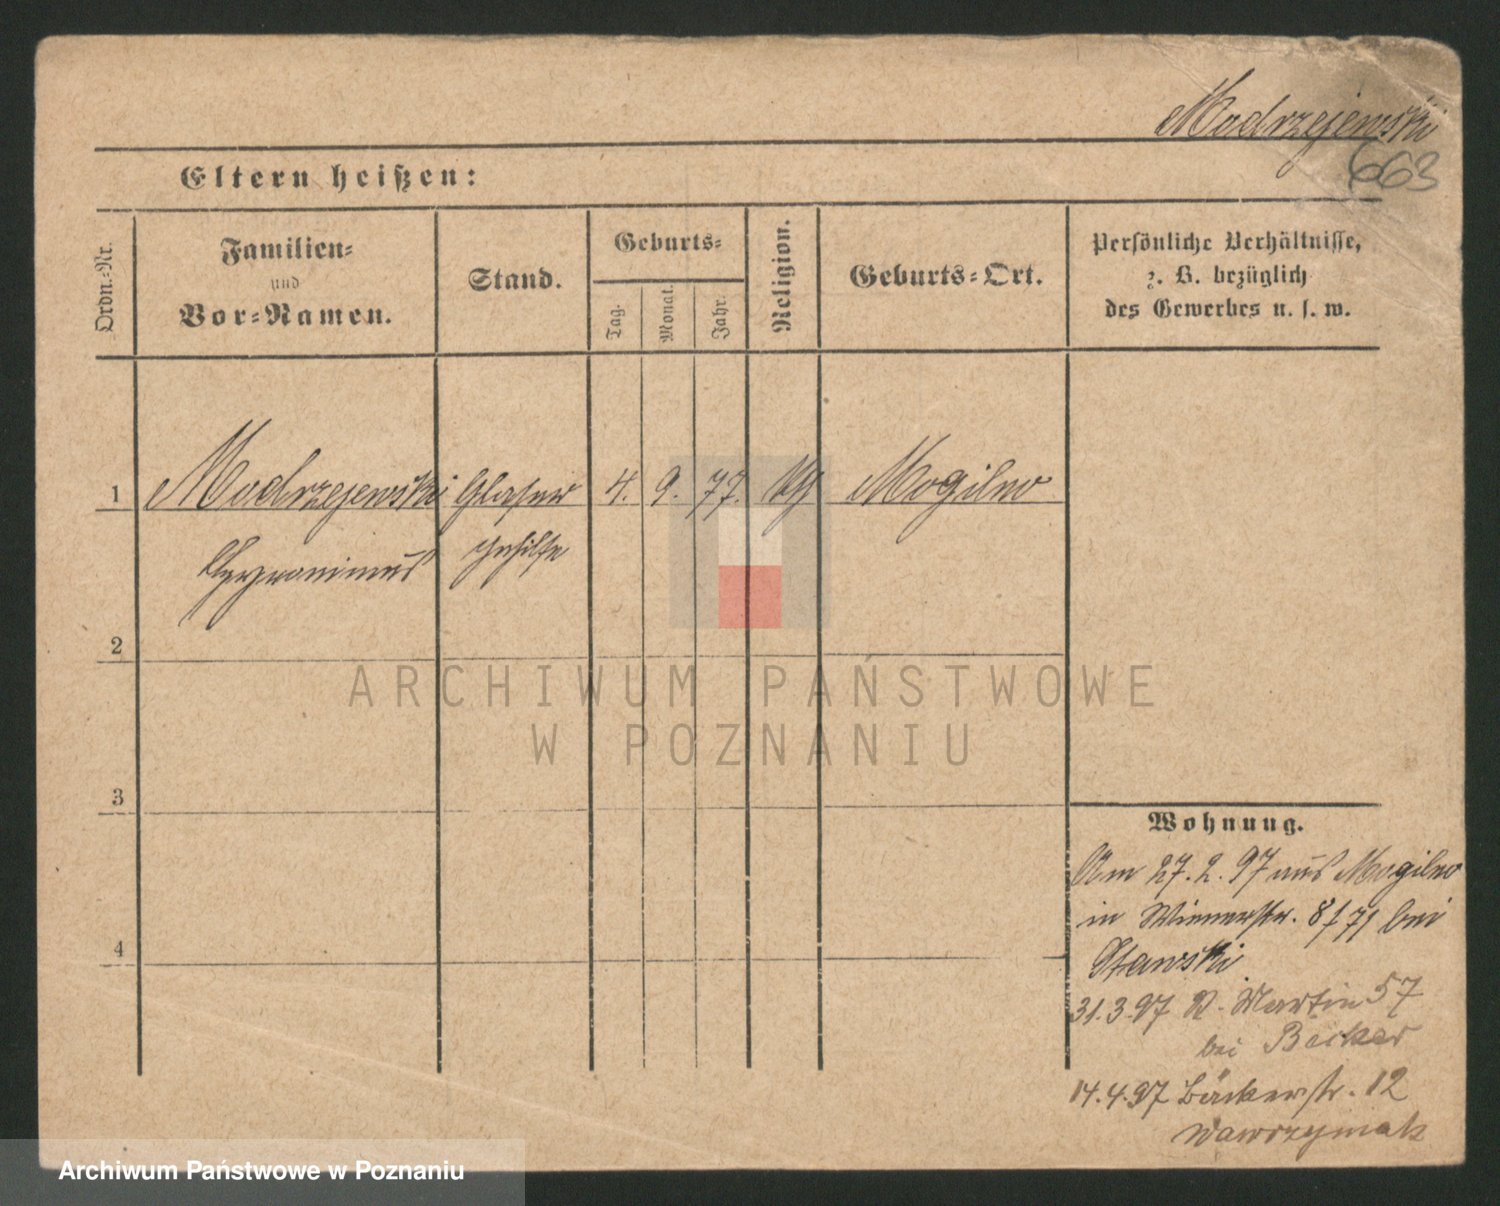 Modrzejewski
663
Eltern heißen:
Ordn.-Nr.
Familien-
und
Vor-Namen.
Stand.
Geburts-
Tag.
Monat.
Jahr.
Religion.
Geburts-Ort.
Persönliche Verhältnisse,
z. B. bezüglich
des Gewerbes u. s. w.
1 Modrzejewski Glaser 4. 9. 77. Mogilno
gehilfe
2
3
4
ARCHIWUM PAŃSTWOWE
W POZNANIU
Wohnung.
Am 27.2.97 aus Mogilno
in Wienerstr. 8/71 bei
Stawski
31.3.97 St. Martin 57
bei Becker
14.4.97 Bäckerstr. 12
Wawrzyniak
Archiwum Państwowe w Poznaniu